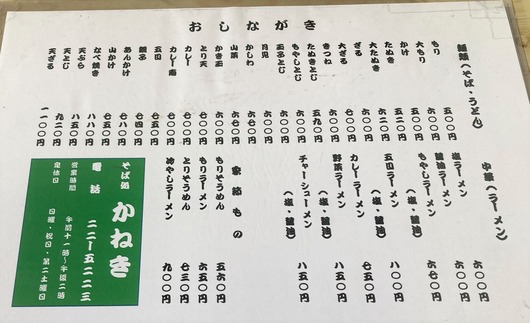 おしながき
麺類(そば・うどん)
もり 五〇〇円
大もり 六五〇円
かけ 五二〇円
たぬき 五二〇円
大たぬき
ざる 六〇〇円
大ざる 七五〇円
きつね 六〇〇円
たぬきとじ 五九〇円
もやしとじ 六〇〇円
玉子とじ 六〇〇円
月見 六〇〇円
かしわ 六七〇円
山菜 六七〇円
かき玉 六〇〇円
とり天
カレー
カレー南
五目 七五〇円
親子 七四〇円
あんかけ 七八〇円
山かけ 七五〇円
なべ焼き 八八〇円
天ぷら 八五〇円
天とじ 九二〇円
天ざる 一一〇〇円
中華(ラーメン)
塩ラーメン 六〇〇円
醤油ラーメン 六〇〇円
もやしラーメン
(塩・醤油) 六七〇円
五目ラーメン
(塩・醤油) 八〇〇円
カレーラーメン 七五〇円
野菜ラーメン
(塩・醤油) 八五〇円
チャーシューメン
(塩・醤油) 八五〇円
季節もの
もりそうめん 五六〇円
もりラーメン 六五〇円
とりそうめん 七三〇円
冷やしラーメン 九〇〇円
そば処 かねき
電話 二二-五二二三
営業時間 午前十一時〜午後二時
定休日 日曜・祝日・第二土曜日